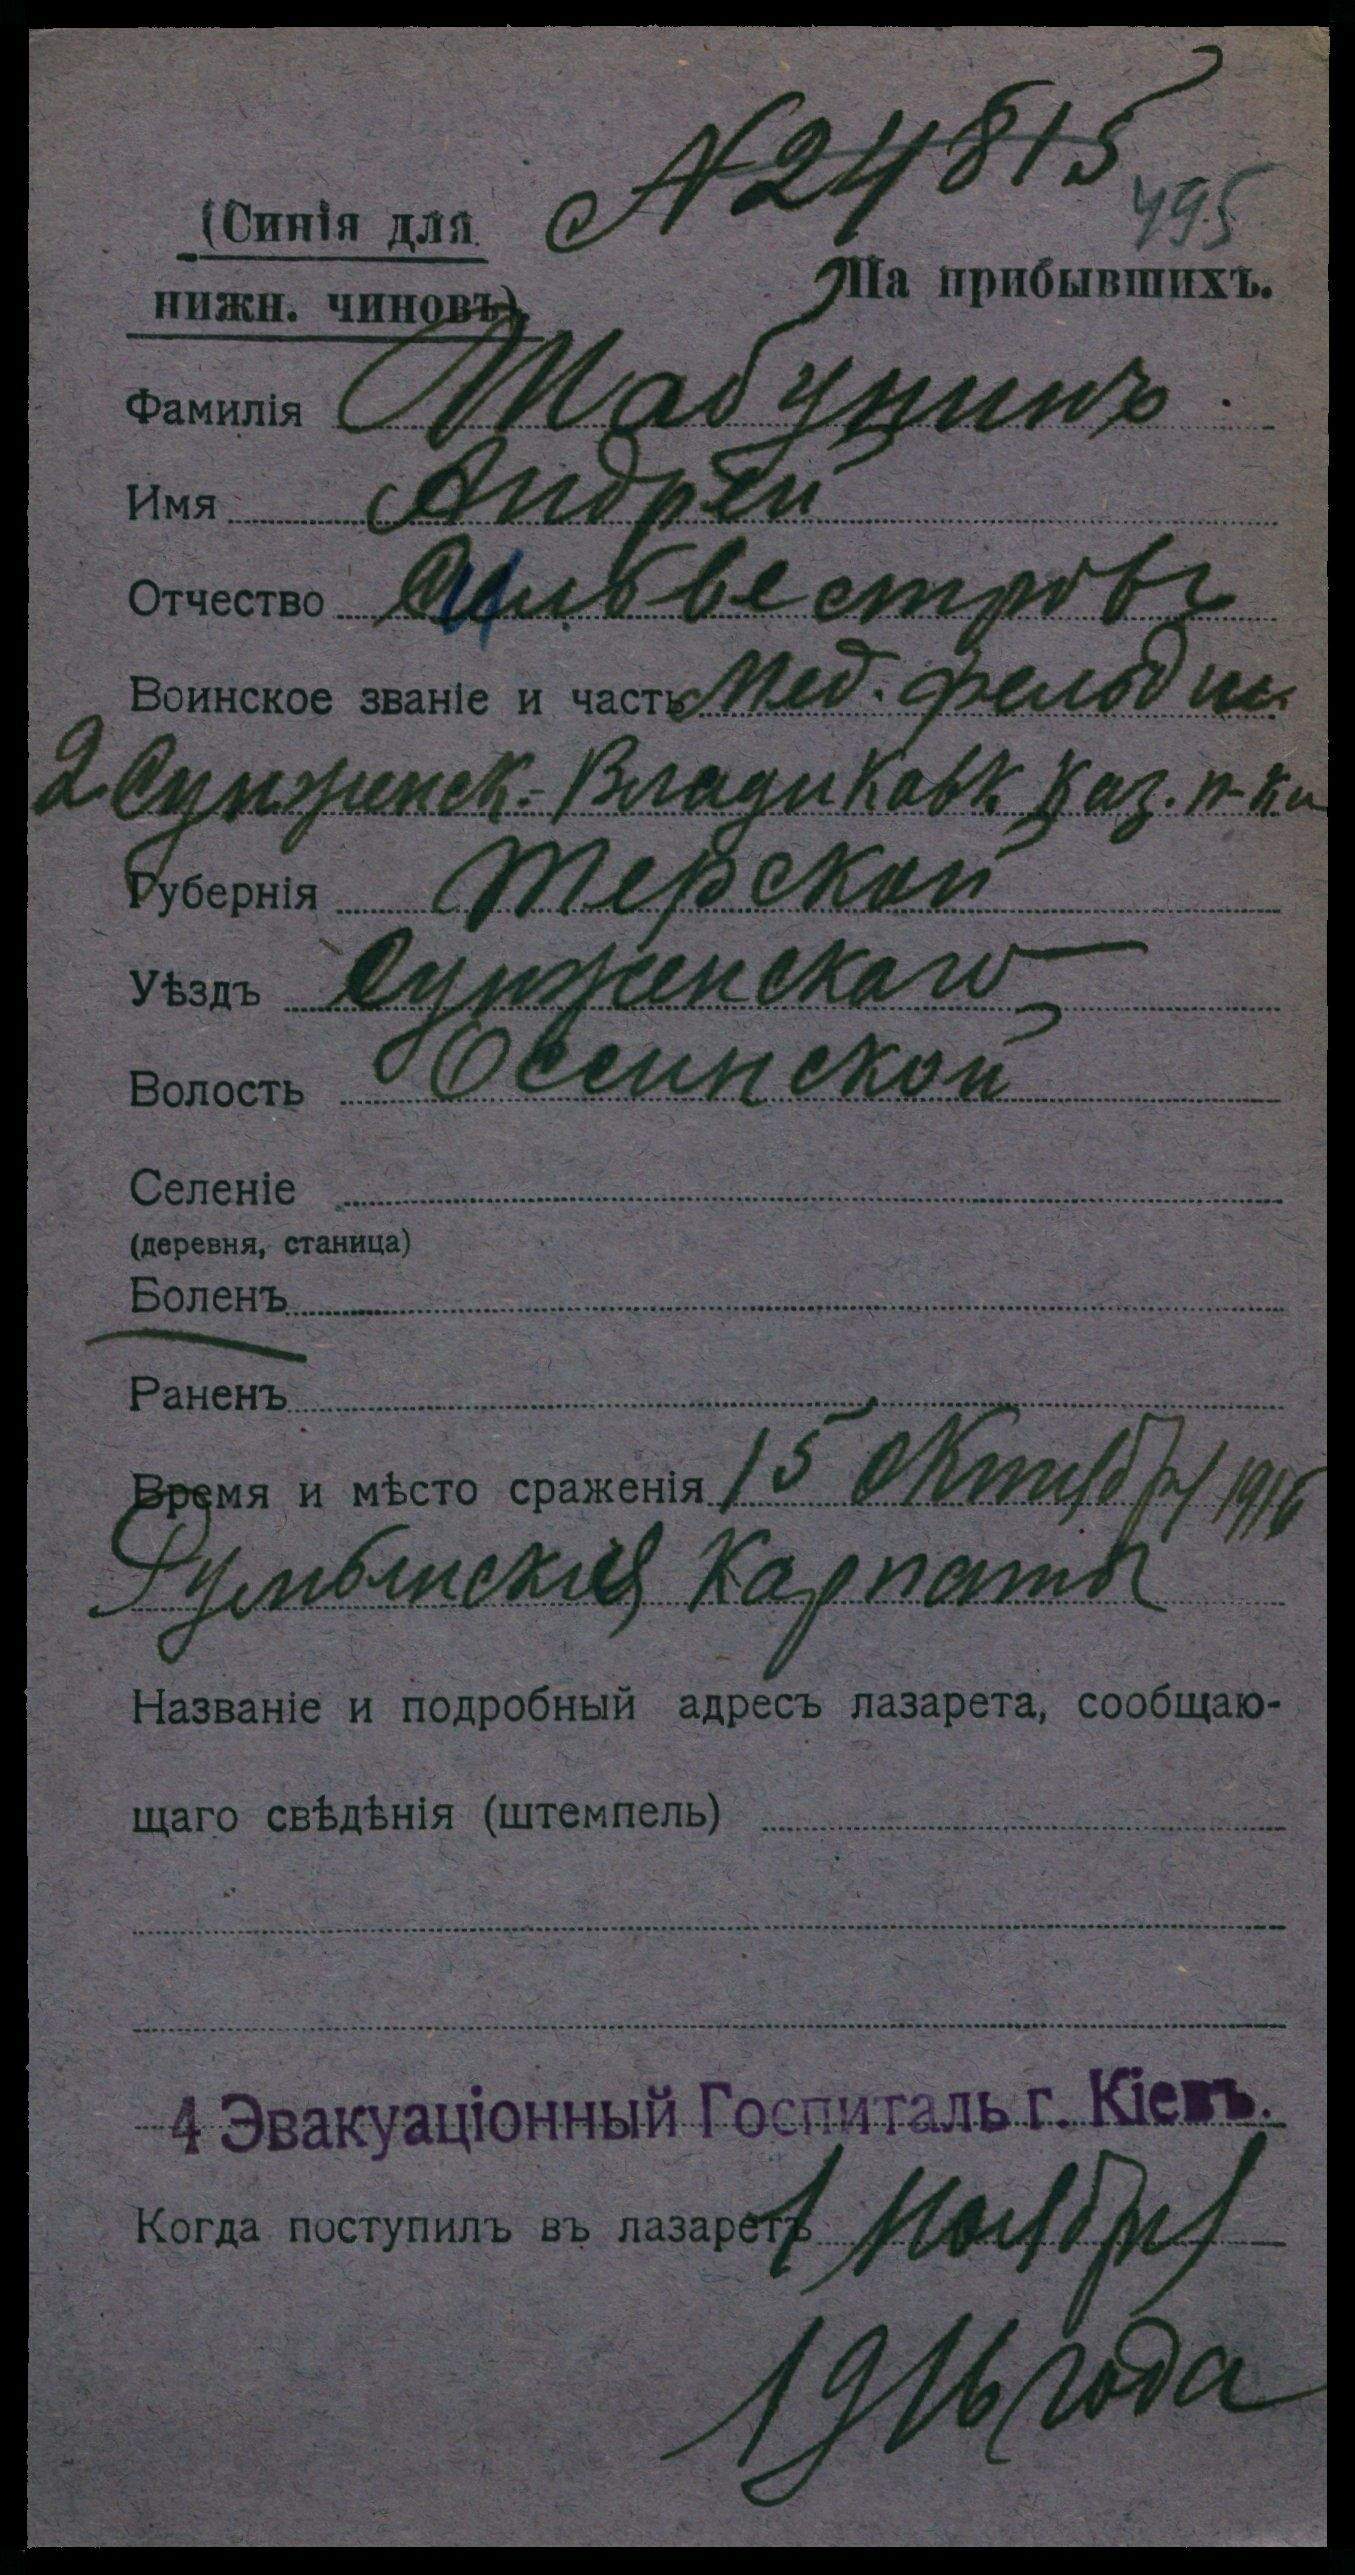 № 24815
495
(Синія для
нижн. чиновъ).
На прибывшихъ.
Фамилія Табунинъ
Имя Андрей
Отчество Сильвестровъ
Воинское званіе и часть Мед. фельдш.
2 Сунженск.-Владикавк. каз. п-ка
Губернія Терской
Уѣздъ Сунженскаго
Волость Ассинской
Селеніе
(деревня, станица)
Боленъ
Раненъ
Время и мѣсто сраженія 15 октября 1916
Румынскія Карпаты
Названіе и подробный адресъ лазарета, сообщаю-
щаго свѣдѣнія (штемпель)
4 Эвакуаціонный Госпиталь г. Кіевъ.
Когда поступилъ въ лазаретъ 1 Ноября
1916 года